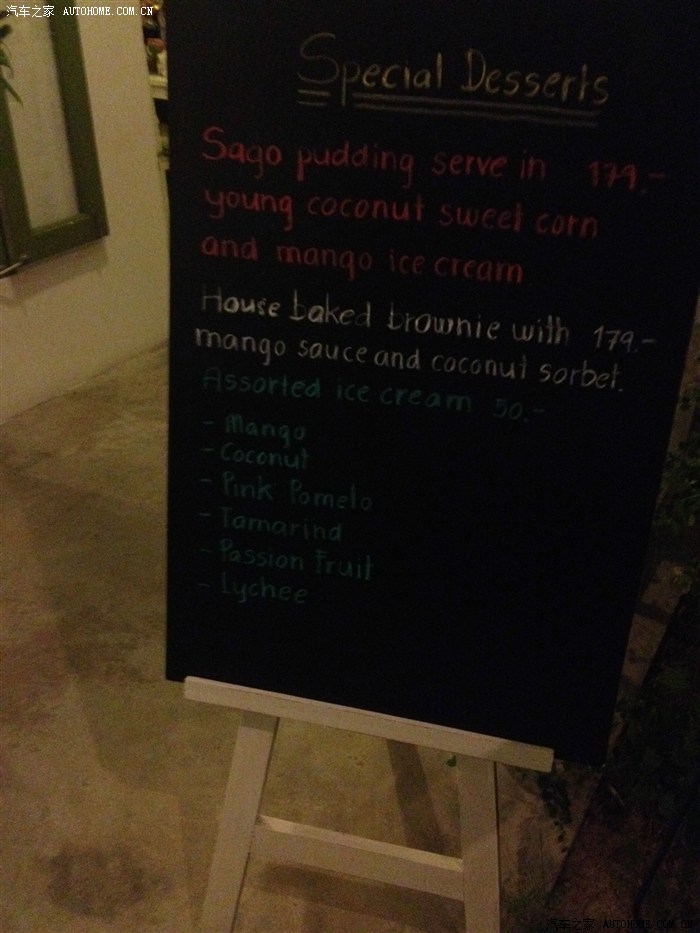 汽车之家 AUTOHOME.COM.CN
Special Desserts
Sago pudding serve in 179.-
young coconut sweet corn
and mango ice cream
House baked brownie with 179.-
mango sauce and coconut sorbet.
Assorted ice cream 50.-
- Mango
- Coconut
- Pink Pomelo
- Tamarind
- Passion Fruit
- Lychee
汽车之家 AUTOHOME.COM.CN